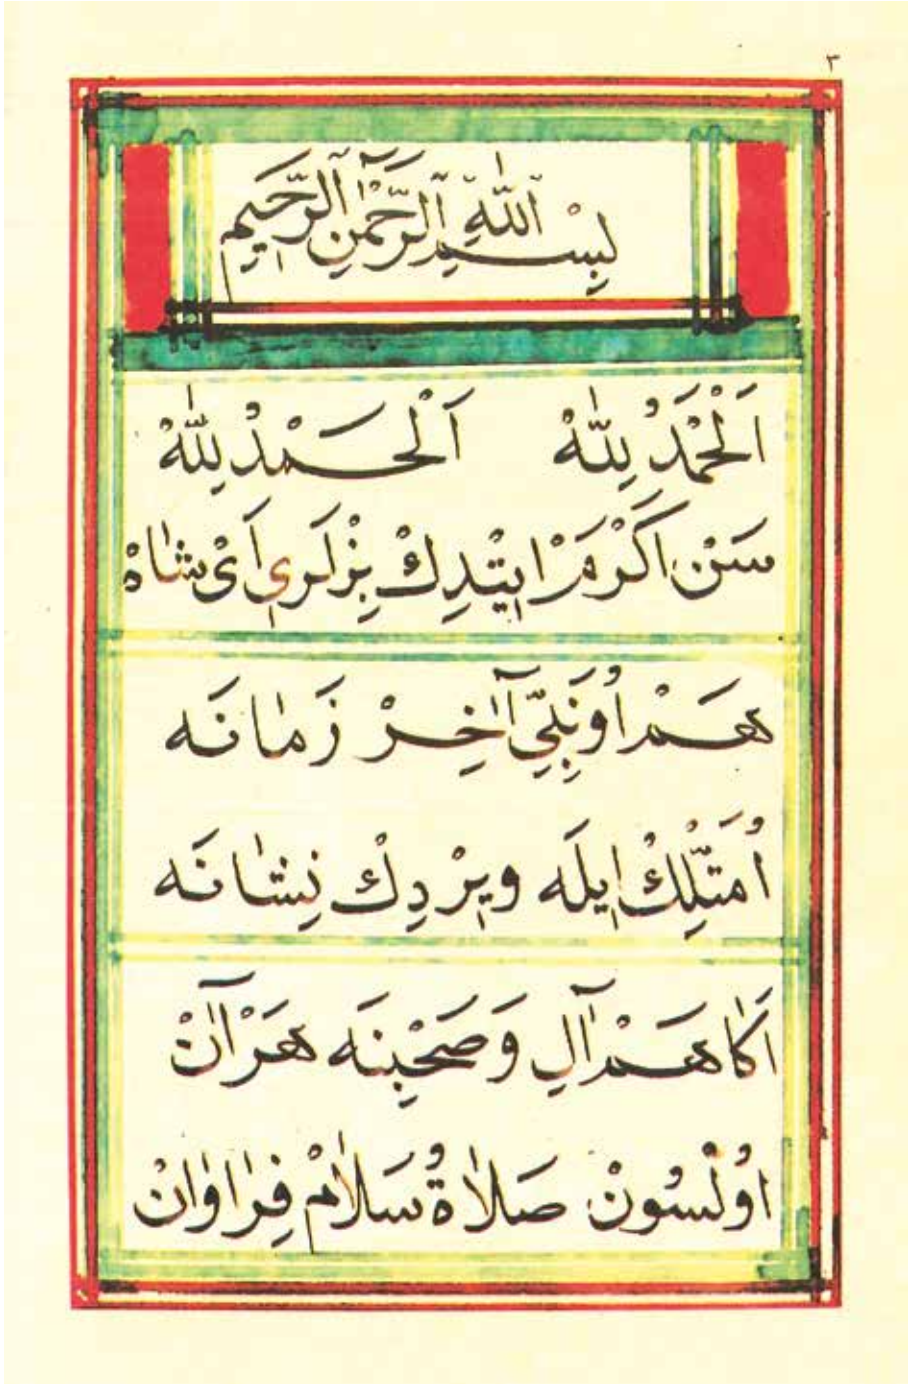 ٣
بِسْمِ اللّٰهِ الرَّحْمٰنِ الرَّحِيمِ
اَلْحَمْدُ لِلّٰهْ اَلْحَمْدُ لِلّٰهْ
سَنْ اَكْرَمْ اِيتْدِكْ بِزْلَرِي اَىْ شَاهْ
هَمْ اُو نَبِيِّ آخِرْ زَمَانَه
اُمَّتْلِكْ اِيلَه وِيرْدِكْ نِشَانَه
اَكَا هَمْ آلِ وَ صَحْبِنَه هَرْ آنْ
اُولْسُونْ صَلَاةُ سَلَامْ فِرَاوَانْ